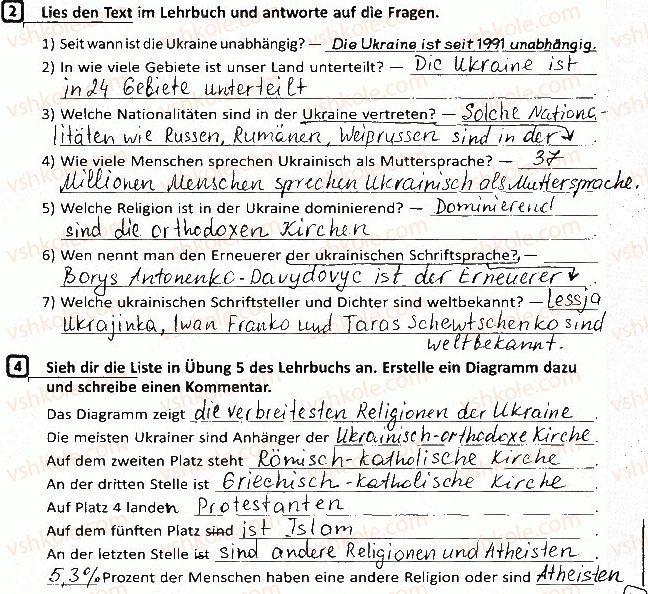 2 Lies den Text im Lehrbuch und antworte auf die Fragen.
1) Seit wann ist die Ukraine unabhängig? — Die Ukraine ist seit 1991 unabhängig.
2) In wie viele Gebiete ist unser Land unterteilt? — Die Ukraine ist
in 24 Gebiete unterteilt
3) Welche Nationalitäten sind in der Ukraine vertreten? — Solche Nationa-
litäten wie Russen, Rumänen, Weiprussen sind in der
4) Wie viele Menschen sprechen Ukrainisch als Muttersprache? — 37
Millionen Menschen sprechen Ukrainisch als Muttersprache.
5) Welche Religion ist in der Ukraine dominierend? — Dominierend
sind die orthodoxen Kirchen
6) Wen nennt man den Erneuerer der ukrainischen Schriftsprache? —
Borys Antonenko-Davydovyc ist der Erneuerer
7) Welche ukrainischen Schriftsteller und Dichter sind weltbekannt? — Lessja
Ukrajinka, Iwan Franko und Taras Schewtschenko sind
weltbekannt.
4 Sieh dir die Liste in Übung 5 des Lehrbuchs an. Erstelle ein Diagramm dazu
und schreibe einen Kommentar.
Das Diagramm zeigt die verbreitesten Religionen der Ukraine.
Die meisten Ukrainer sind Anhänger der Ukrainisch-orthodoxe Kirche.
Auf dem zweiten Platz steht Römisch-katholische Kirche.
An der dritten Stelle ist Griechisch-katholische Kirche.
Auf Platz 4 landen Protestanten.
Auf dem fünften Platz sind ist Islam.
An der letzten Stelle ist sind andere Religionen und Atheisten.
5,3% Prozent der Menschen haben eine andere Religion oder sind Atheisten